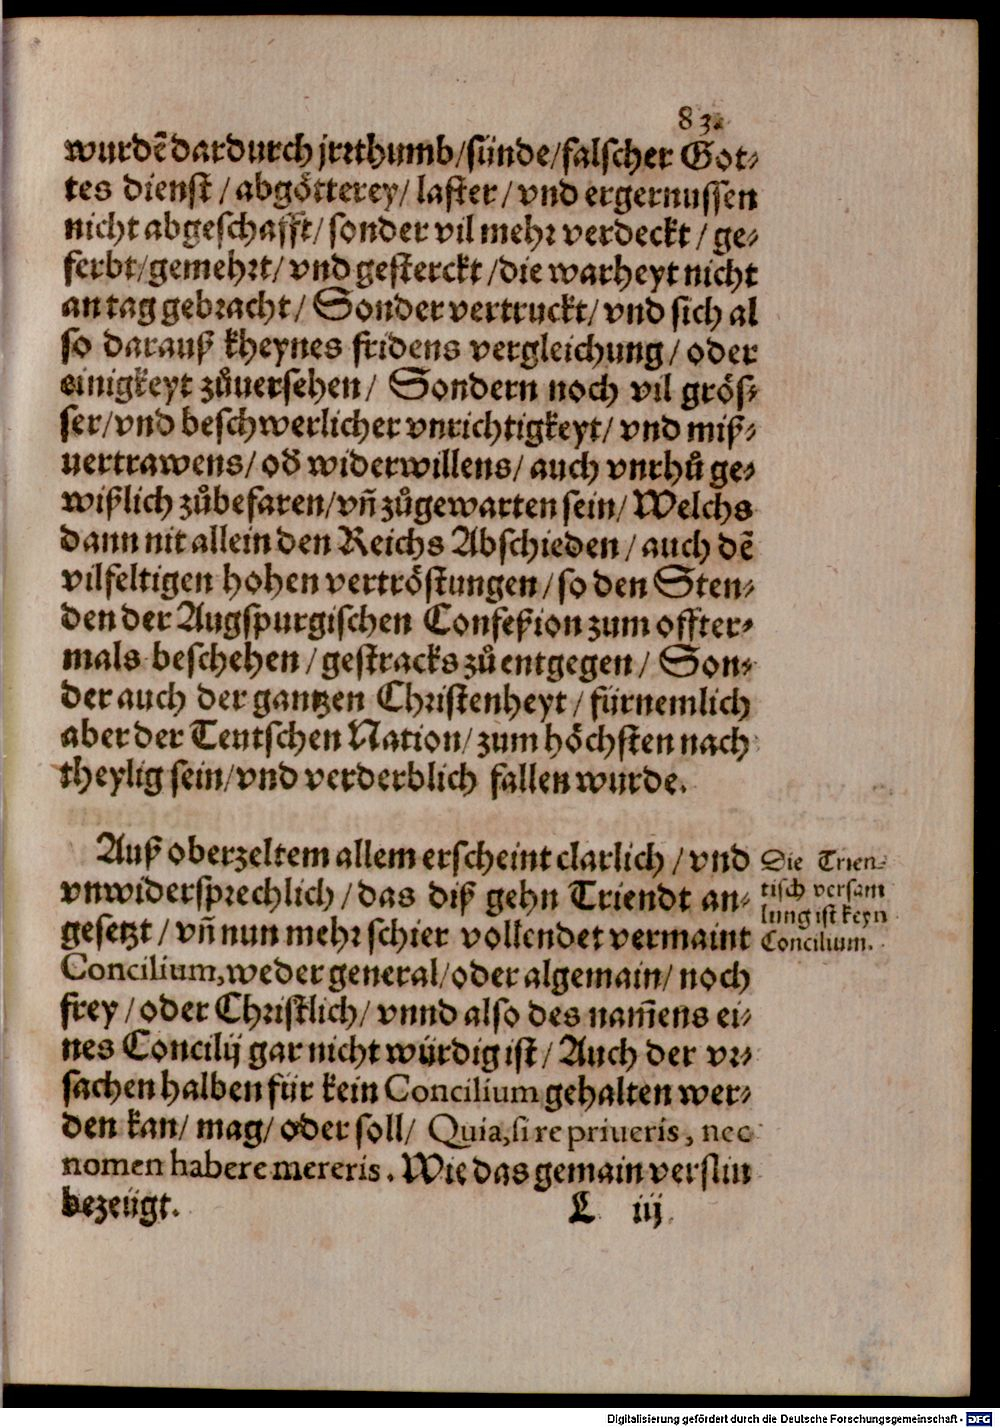 83.
wurdẽ dardurch jrrthumb/sünde/falscher Got-
tes dienst / abgötterey/ laster / vnd ergernussen
nicht abgeschafft/ sonder vil mehr verdeckt / ge-
ferbt/gemehrt/ vnd gesterckt /die warheyt nicht
an tag gebracht/ Sonder vertruckt/ vnd sich al
so darauß kheynes fridens vergleichung/ oder
einigkeyt zůuersehen/ Sondern noch vil grös-
ser/vnd beschwerlicher vnrichtigkeyt/ vnd miß-
uertrawens/ oď widerwillens/ auch vnrhů ge-
wißlich zůbefaren/vñ zůgewarten sein/ Welchs
dann nit allein den Reichs Abschieden / auch dẽ
vilfeltigen hohen vertröstungen /so den Sten-
den der Augspurgischen Confeßion zum offter-
mals beschehen / gestracks zů entgegen / Son-
der auch der gantzen Christenheyt / fürnemlich
aber der Teutschen Nation/ zum höchsten nach
theylig sein/vnd verderblich fallen wurde.
Auß oberzeltem allem erscheint clarlich / vnd
vnwidersprechlich / das diß gehn Triendt an-
gesetzt / vñ nun mehr schier vollendet vermaint
Concilium, weder general/oder algemain/ noch
frey / oder Christlich/ vnnd also des nam̃ens ei-
nes Concilij gar nicht würdig ist/ Auch der vr-
sachen halben für kein Concilium gehalten wer-
den kan/ mag/ oder soll/ Quia, si re priueris, nec
nomen habere mereris. Wie das gemain verslin
bezeügt.
L iij
Die Trien-
tisch versam
lung ist keyn
Concilium.
Digitalisierung gefördert durch die Deutsche Forschungsgemeinschaft - DFG